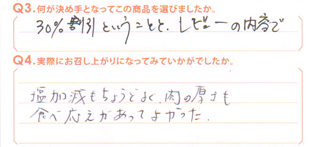 Q3.何が決め手となってこの商品を選びましたか。
30%割引ということと、レビューの内容で
Q4.実際にお召し上がりになってみていかがでしたか。
塩加減もちょうどよく、肉の厚さも
食べ応えがあってよかった。